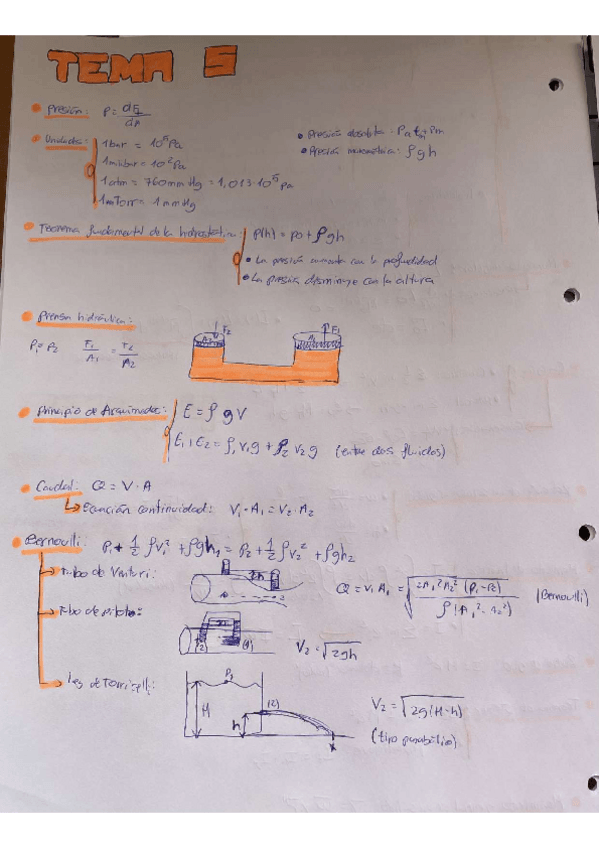 TEMA 5
• Presión: P = dF/dA
• Unidades: 1 bar = 10⁵ Pa
1 milibar = 10² Pa
1 atm = 760 mm Hg = 1,013·10⁵ Pa
1 mTorr = 1 mm Hg
• Presión absoluta: Patm + Pm
• Presión manométrica: ρgh
• Teorema fundamental de la hidrostática: P(h) = p0 + ρgh
• La presión aumenta con la profundidad
• La presión disminuye con la altura
• Prensa hidráulica:
P₁ = P₂ F₁/A₁ = F₂/A₂
F₂ F₁
• Principio de Arquímedes: E = ρgV
E₁ + E₂ = ρ₁V₁g + ρ₂V₂g (entre dos fluidos)
• Caudal: Q = V·A
↳ Ecuación continuidad: V₁·A₁ = V₂·A₂
• Bernoulli: P₁ + 1/2 ρV₁² + ρgh₁ = P₂ + 1/2 ρV₂² + ρgh₂
→ Tubo de Venturi: h Q = V₁A₁ = √(2A₁²A₂²(P₁-P₂) / ρ(A₁²-A₂²)) (Bernoulli)
→ Tubo de pitoto: (2) (1) V₂ = √2gh
→ Ley de Torricelli: H h (2) x V₂ = √2g(H-h)
(tiro parabólico)